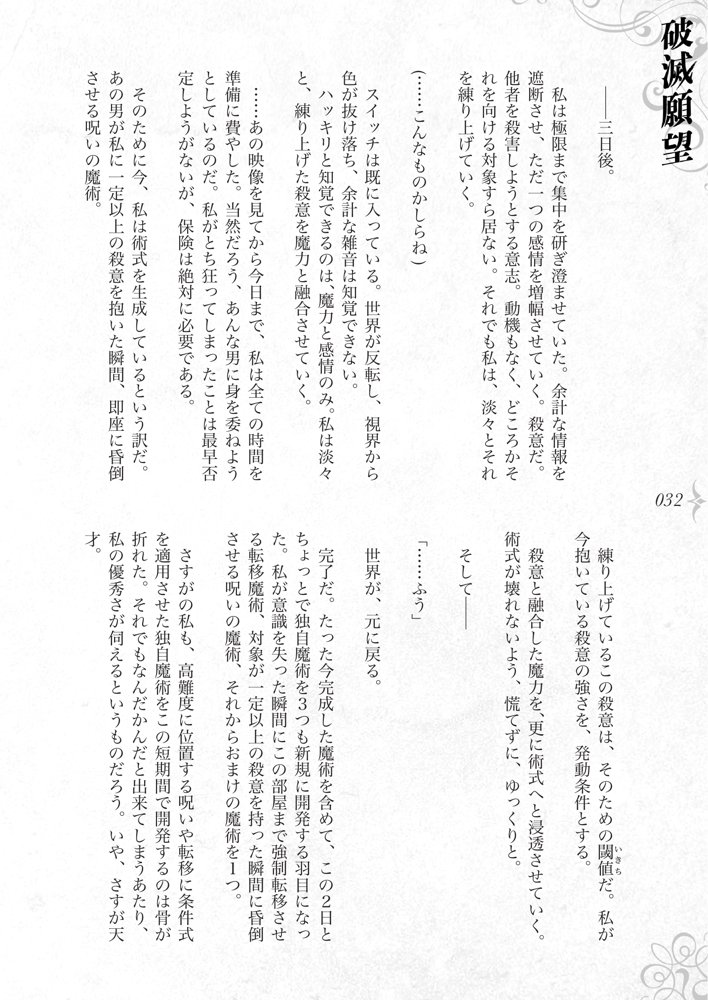 破滅願望
――三日後。
私は極限まで集中を研ぎ澄ませていた。余計な情報を
遮断させ、ただ一つの感情を増幅させていく。殺意だ。
他者を殺害しようとする意志。動機もなく、どころかそ
れを向ける対象すら居ない。それでも私は、淡々とそれ
を練り上げていく。
(……こんなものかしらね)
スイッチは既に入っている。世界が反転し、視界から
色が抜け落ち、余計な雑音は知覚できない。
ハッキリと知覚できるのは、魔力と感情のみ。私は淡々
と、練り上げた殺意を魔力と融合させていく。
……あの映像を見てから今日まで、私は全ての時間を
準備に費やした。当然だろう、あんな男に身を委ねよう
としているのだ。私がとち狂ってしまったことは最早否
定しようがないが、保険は絶対に必要である。
そのために今、私は術式を生成しているという訳だ。
あの男が私に一定以上の殺意を抱いた瞬間、即座に昏倒
させる呪いの魔術。
練り上げているこの殺意は、そのための閾値いきちだ。私が
今抱いている殺意の強さを、発動条件とする。
殺意と融合した魔力を、更に術式へと浸透させていく。
術式が壊れないよう、慌てずに、ゆっくりと。
そして――
「……ふう」
世界が、元に戻る。
完了だ。たった今完成した魔術を含めて、この２日と
ちょっとで独自魔術を３つも新規に開発する羽目になっ
た。私が意識を失った瞬間にこの部屋まで強制転移させ
る転移魔術、対象が一定以上の殺意を持った瞬間に昏倒
させる呪いの魔術、それからおまけの魔術を１つ。
さすがの私も、高難度に位置する呪いや転移に条件式
を適用させた独自魔術をこの短期間で開発するのは骨が
折れた。それでもなんだかんだと出来てしまうあたり、
私の優秀さが伺えるというものだろう。いや、さすが天
才。
032